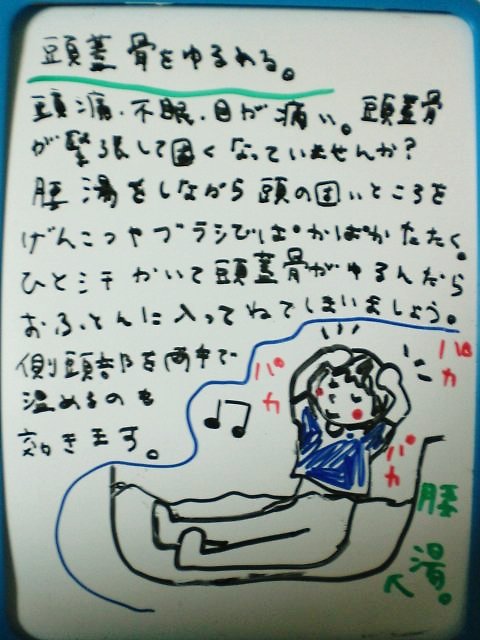 頭蓋骨をゆるめる。
頭痛・不眠・目が痛い。頭蓋骨
が緊張して固くなっていませんか?
腰湯をしながら頭の固いところを
げんこつやブラシでぱかぱかたたく。
ひと汗かいて頭蓋骨がゆるんだら
おふとんに入ってねてしまいましょう。
側頭部を両手で
温めるのも
効きます。
パカ
パカ
パカ
腰湯。